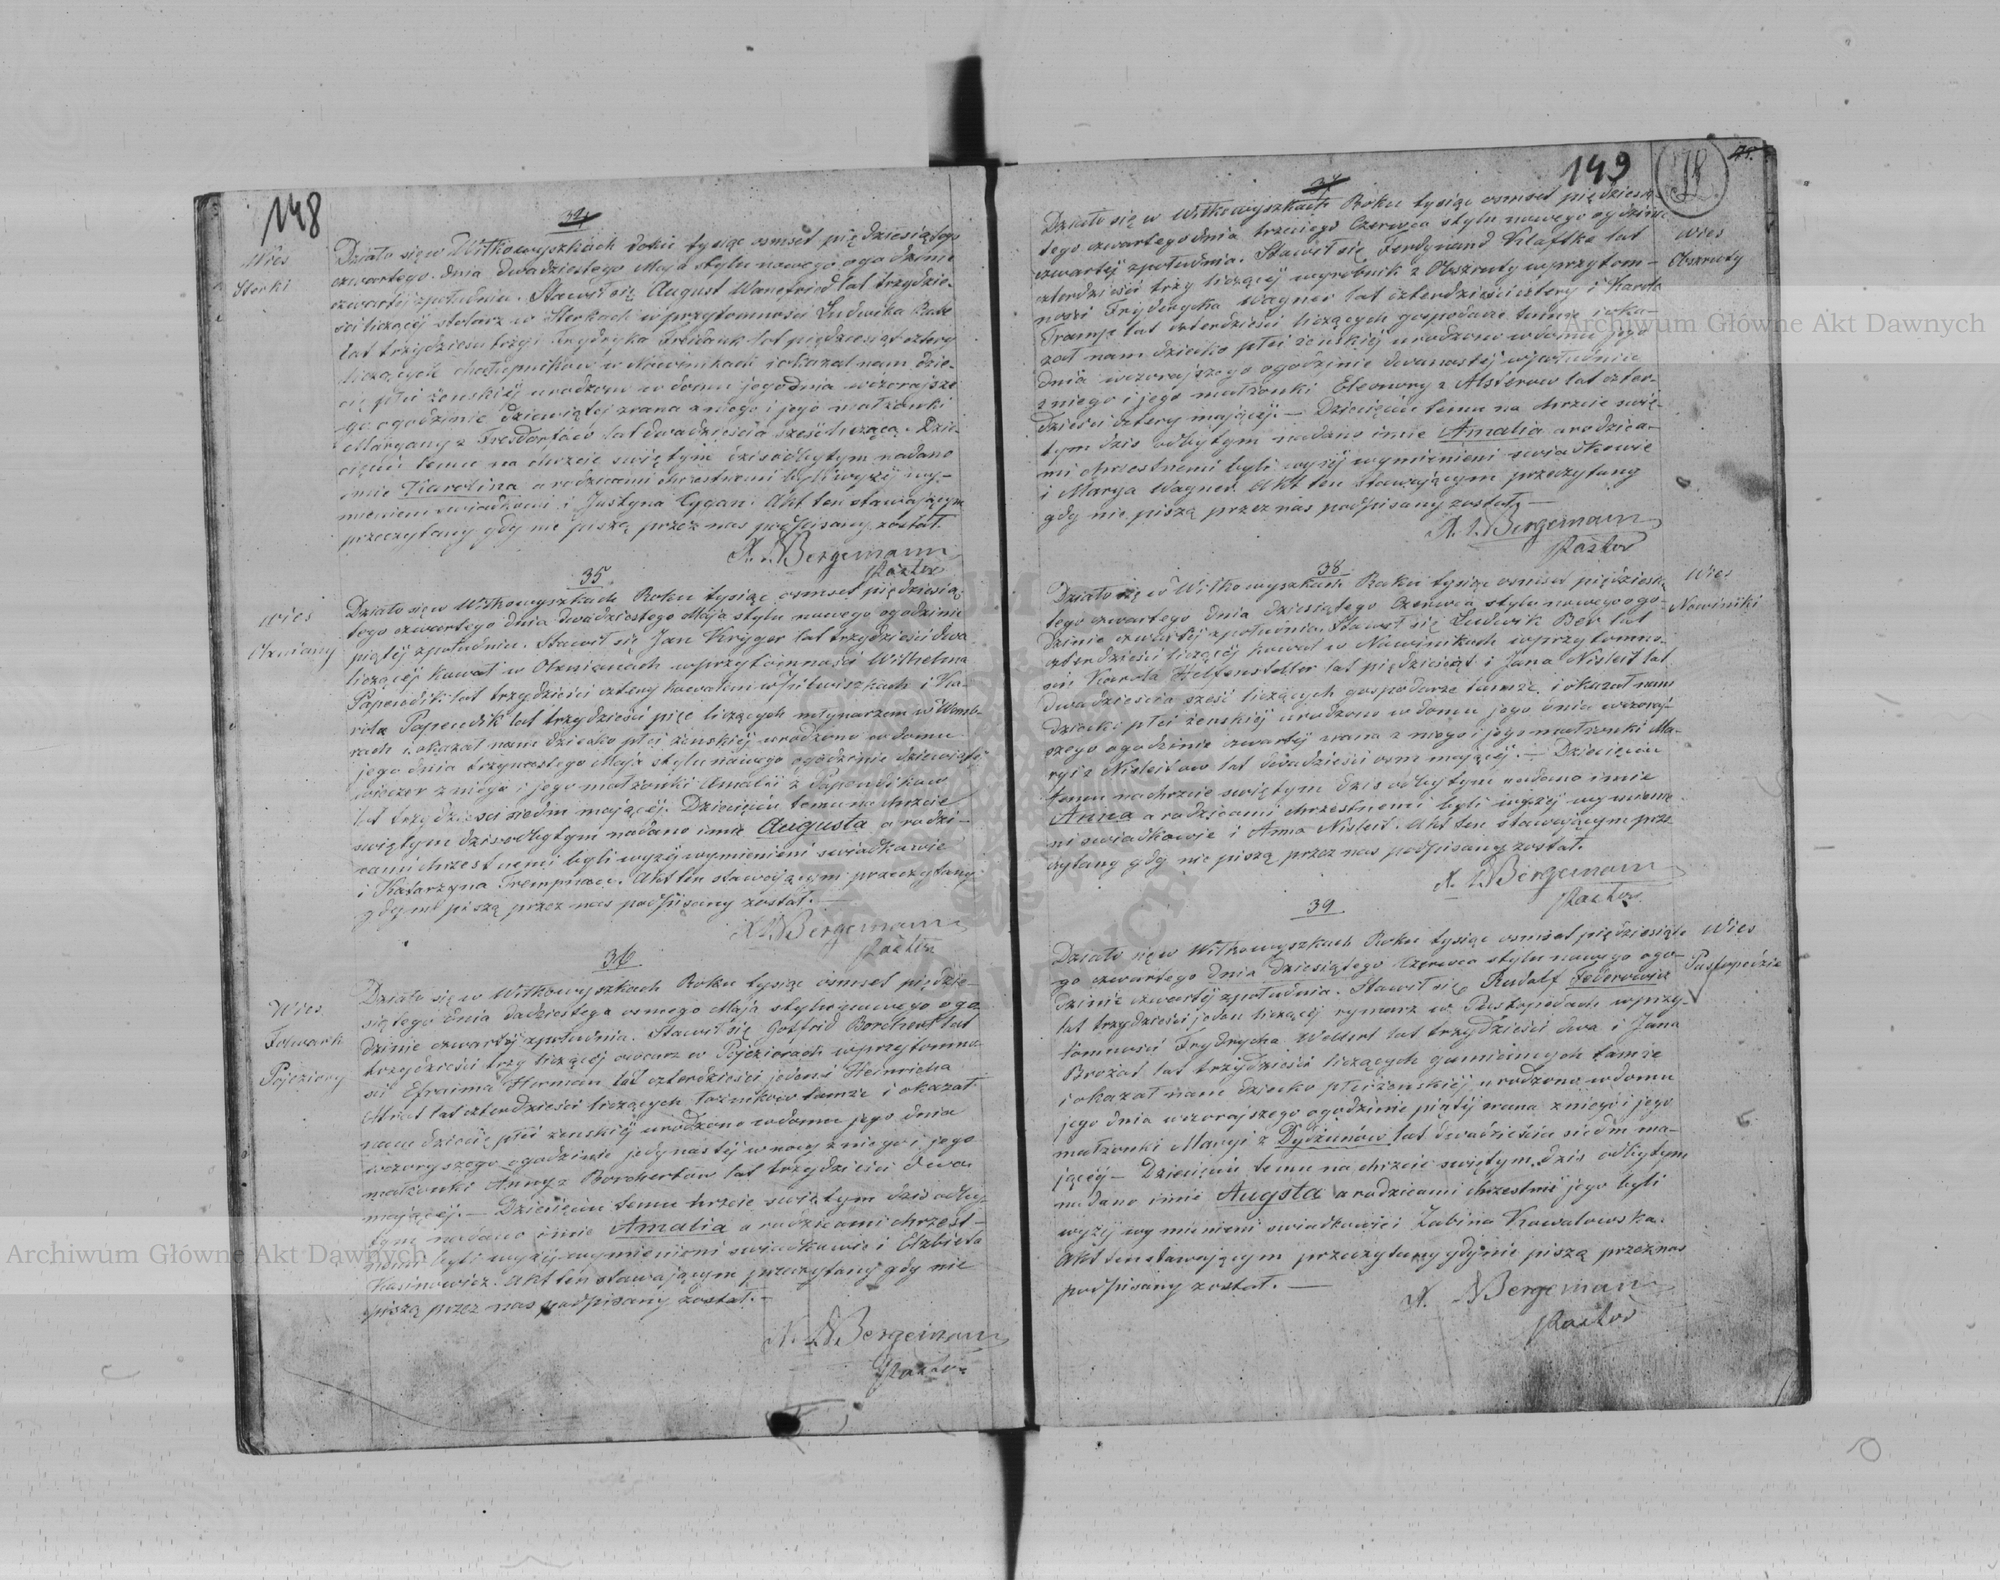 148
34
Wies
Sterki
Działo się w Wiłkowyszkach Roku tysiąc osmset piędziesiątego
czwartego dnia dwudziestego Maja stylu nowego o godzinie
czwartej z południa. Stawił się August Wanefried lat trzydzie-
ści liczący stolarz w Sterkach w przytomności Ludwika Rabe
lat trzydzieści trzy i Frydryka Freidank lat pięдziesiąt cztery
liczących chałupników w Nowinikach i okazał nam dzie-
cię płci żeńskiej urodzone w domu jego dnia wczorajsze-
go o godzinie dziewiątej zrana z niego i jego małżonki
Maryany z Fresdorfów lat dwadzieścia sześć liczącą. Dzie-
cięciu temu na chrzcie świętym dziś odbytym nadano
imie Karolina a rodzicami chrzestnemi byli wyżej wy-
mienieni świadkowie i Justyna Cygan. Akt ten stawającym
przeczytany gdy nie piszą przez nas podpisany został.
Bergemann
Pastor
35
wies
Ożwiany
Działo się w Wiłkowyszkach Roku tysiąc osmset piędziesią-
tego czwartego dnia dwudziestego Maja stylu nowego o godzinie
piątej z południa. Stawił się Jan Kryger lat trzydzieści dwa
liczący kowal w Ożwianach w przytomności Wilhelma
Papendik lat trzydzieści cztery kowalem w i Ka-
rola Papendik lat trzydzieści pięć liczących młynarzem w Womb-
rach i okazał nam dziecko płci żeńskiej urodzone w domu
jego dnia trzynastego Maja stylu nowego o godzinie dziewiątej
wieczor z niego i jego małżonki Amalii z Papendikow
lat trzydzieści siedm mającej. Dziecięciu temu na chrzcie
świętym dziś odbytym nadano imie Augusta a rodzi-
cami chrzestnemi byli wyżej wymienieni świadkowie
i Katarzyna Trempnau. Akt ten stawającym przeczytany
gdy nie piszą przez nas podpisany został.
Bergemann
Pastor
36
Wies
Folwark
Pojeziory
Działo się w Wiłkowyszkach Roku tysiąc osmset piędzie-
siątego dnia dwudziestego osmego Maja stylu nowego o go-
dzinie czwartej z południa. Stawił się Gotfrid Borchert lat
trzydzieści trzy liczący owczarz w Pojeziorach w przytomno-
ści Efraima Herman lat czterdzieści jeden i Heinricha
lat czterdzieści liczących tamże i okazał
nam dziecię płci żeńskiej urodzone w domu jego dnia
wczorajszego o godzinie jedynastej w nocy z niego i jego
małżonki Anny z Borchertów lat trzydzieści dwa
mającej. — Dziecięciu temu chrzcie świętym dziś odby-
tym nadano imie Amalia a rodzicami chrzest-
nemi byli wyżej wymienieni świadkowie i Elżbieta
Kasinowicz. Akt ten stawającym przeczytany gdy nie
piszą przez nas podpisany został. —
Bergemann
Pastor
149
78
37
Wies
Obszruty
Działo się w Wiłkowyszkach Roku tysiąc osmset piędziesią-
tego czwartego dnia trzeciego Czerwca stylu nowego o godzinie
czwartej z południa. Stawił się Ferdynand Klaffke lat
czterdzieści trzy liczący wyrobnik z Obszrut w przytom-
ności Frydrycha Wagner lat czterdzieści cztery i Karola
Tramp lat czterdzieści liczących gospodarze tamże i oka-
zał nam dziecko płci żeńskiej urodzone w domu jego
dnia wczorajszego o godzinie dwunastej w południe
z niego i jego małżonki Eleonory z Alsterow lat czter-
dzieści cztery mającej. — Dziecięciu temu na chrzcie świę-
tym dziś odbytym nadano imie Amalia a rodzica-
mi chrzestnemi byli wyżej wymienieni świadkowie
i Marya Wagner. Akt ten stawającym przeczytany
gdy nie piszą przez nas podpisany został. —
Bergemann
Pastor
38
Wies
Nowiniki
Działo się w Wiłkowyszkach Roku tysiąc osmset piędziesią-
tego czwartego dnia dziesiątego Czerwca stylu nowego o go-
dzinie czwartej z południa. Stawił się Ludwik Ber lat
czterdzieści liczący kowal w Nowinikach w przytomno-
ści Karola Helfensteller lat pięдziesiąt i Jana Nisleit lat
dwadzieścia sześć liczących gospodarze tamże i okazał nam
dziecko płci żeńskiej urodzone w domu jego dnia wczoraj-
szego o godzinie czwartej zrana z niego i jego małżonki Ma-
ryi z Nisleitow lat dwadzieści osm mającej. — Dziecięciu
temu na chrzcie świętym dziś odbytym nadano imie
Anna a rodzicami chrzestnemi byli wyżej wymienie-
ni świadkowie i Anna Nisleit. Akt ten stawającym prze-
czytany gdy nie piszą przez nas podpisany został.
Bergemann
Pastor
39
Wies
Pustopedzie
Działo się w Wiłkowyszkach Roku tysiąc osmset piędziesiąte-
go czwartego dnia dziesiątego Czerwca stylu nowego o go-
dzinie czwartej z południa. Stawił się Rudolf Federowicz
lat trzydzieści jeden liczący rymarz w Pustopedach w przy-
tomności Frydrycha Weldert lat trzydzieści dwa i Jana
Brozat lat trzydzieści liczących gumiennych tamże
i okazał nam dziecko płci żeńskiej urodzone w domu
jego dnia wczorajszego o godzinie piątej zrana z niego i jego
małżonki Maryi z Dydżunów lat dwadzieścia siedm ma-
jącej — Dziecięciu temu na chrzcie świętym dziś odbytym
nadano imie Augsta a rodzicami chrzestnemi jego byli
wyżej wymienieni świadkowie i Zabina Kowalowska.
Akt ten stawającym przeczytany gdy nie piszą przez nas
podpisany został. —
Bergemann
Pastor
Archiwum Główne Akt Dawnych
Archiwum Główne Akt Dawnych